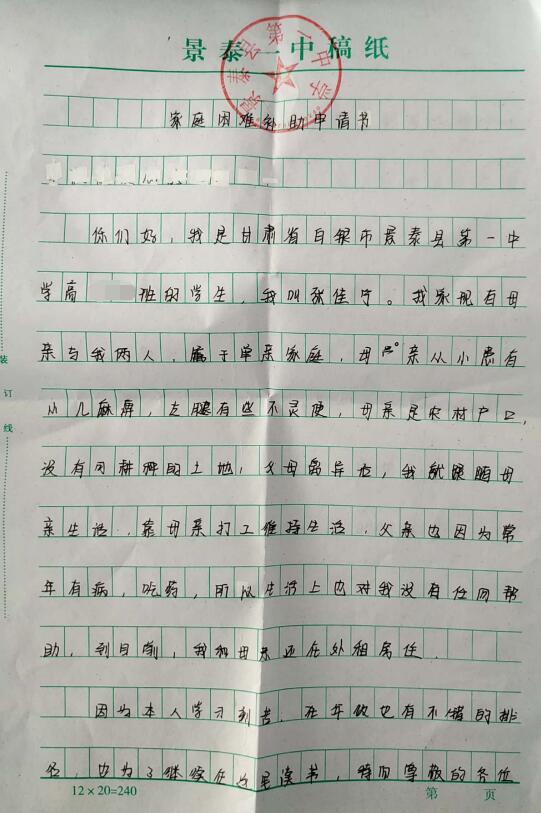 景泰一中稿纸
景泰县第一中学
家庭困难补助申请书
你们好，我是甘肃省白银市景泰县第一中
学高 班的学生，我叫张佳宁。我家现有母
亲与我两人，属于单亲家庭，母亲从小患有
小儿麻痹，左腿有些不灵便，母亲是农村户口，
没有可耕种的土地，父母离异后，我就跟随母
亲生活，靠母亲打工维持生活，父亲也因为常
年有病，吃药，所以生活上也对我没有任何帮
助，到目前，我和母亲还在外租房住．
因为本人学习刻苦．在年级也有不错的排
名，也为了继续 读书，特向尊敬的各位
装
订
线
12×20=240
第 页